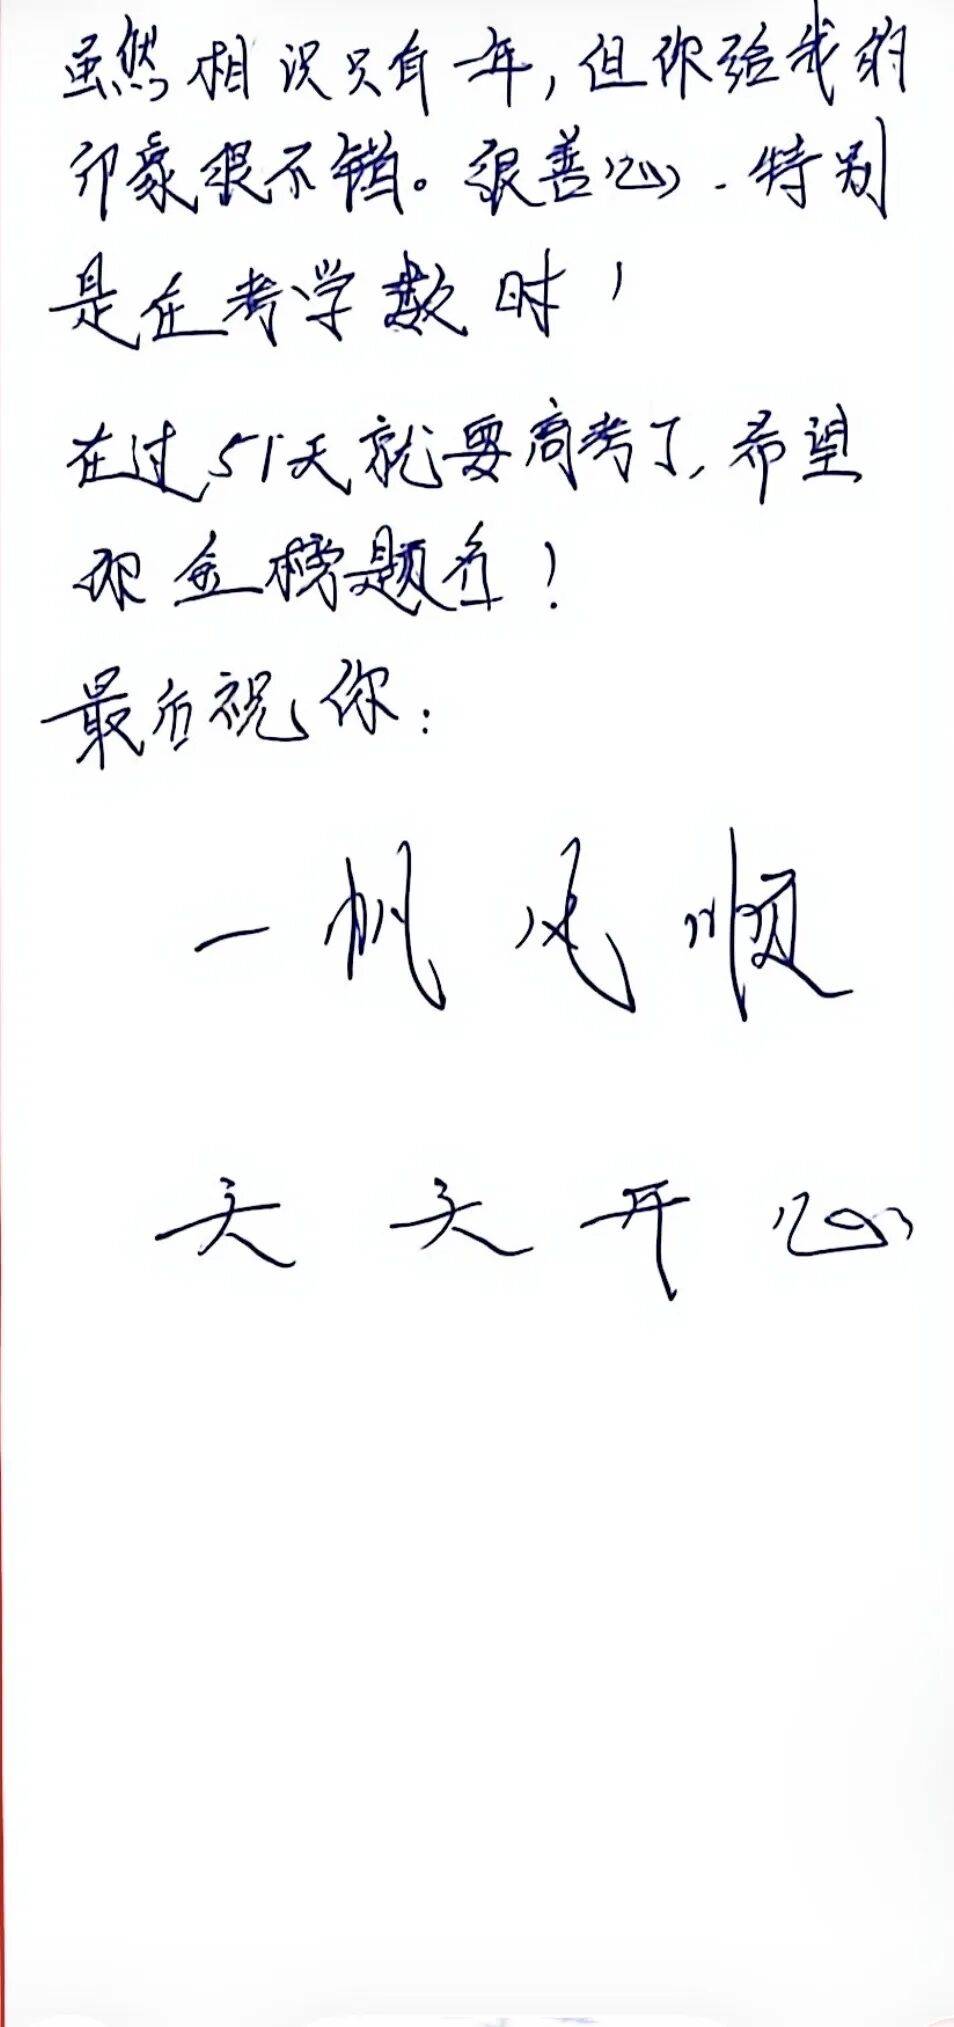 虽然相识只有一年,但你给我的
印象很不错。很善心.特别
是在考学数时!
在过51天就要高考了,希望
你金榜题名!
最后祝你:
一帆风顺
天天开心